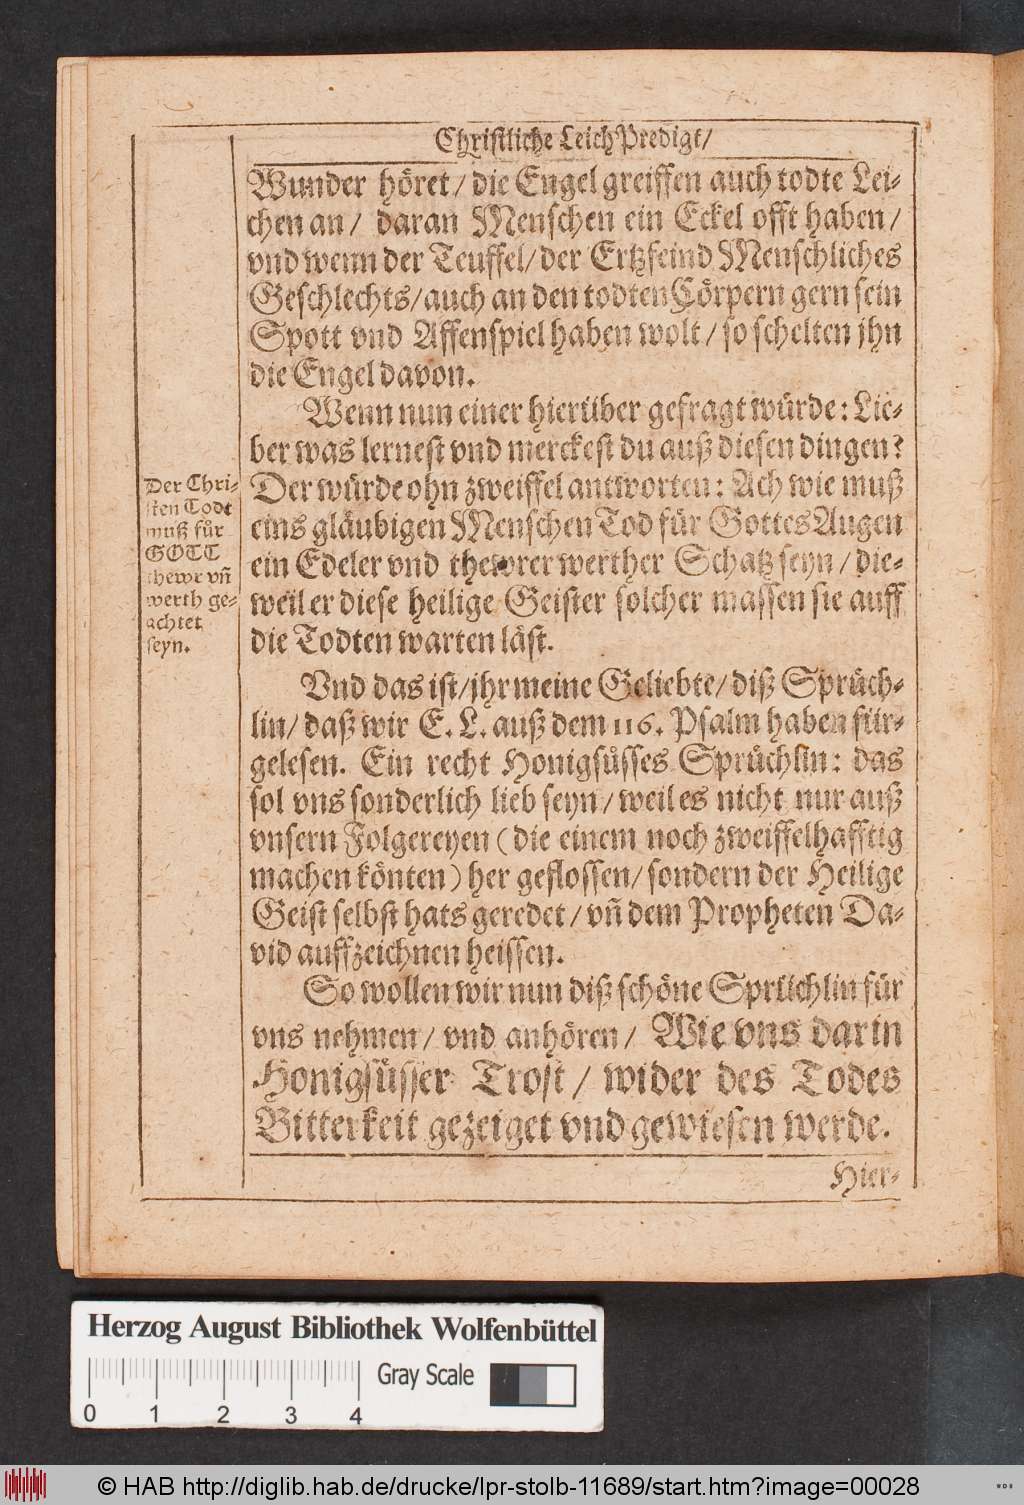 Christliche Leich Predigt/
Wunder höret/ die Engel greiffen auch todte Lei-
chen an/ daran Menschen ein Eckel offt haben/
vnd wenn der Teuffel/ der Ertzfeind Menschliches
Geschlechts/ auch an den todten Cörpern gern sein
Spott vnd Affenspiel haben wolt/ so schelten jhn
die Engel davon.
Wenn nun einer hierüber gefragt würde: Lie-
ber was lernest vnd merckest du auß diesen dingen?
Der würde ohn zweiffel antworten: Ach wie muß
eins gläubigen Menschen Tod für Gottes Augen
ein Edeler vnd thewrer werther Schatz seyn/ die-
weil er diese heilige Geister solcher massen sie auff
die Todten warten läst.
Der Chri-
sten Todt
muß für
GOTT
thewr vñ
werth ge-
achtet
seyn.
Vnd das ist/ jhr meine Geliebte/ diß Sprüch-
lin/ daß wir E. L. auß dem 116. Psalm haben für-
gelesen. Ein recht Honigsüsses Sprüchlin: das
sol vns sonderlich lieb seyn/ weil es nicht nur auß
vnsern Folgereyen (die einem noch zweiffelhafftig
machen könten) her geflossen/ sondern der Heilige
Geist selbst hats geredet/ vñ dem Propheten Da-
vid auffzeichnen heissen.
So wollen wir nun diß schöne Sprüchlin für
vns nehmen/ vnd anhören/ Wie vns darin
Honigsüsser Trost/ wider des Todes
Bitterkeit gezeiget vnd gewiesen werde.
Hier-
Herzog August Bibliothek Wolfenbüttel
Gray Scale
0 1 2 3 4
© HAB http://diglib.hab.de/drucke/lpr-stolb-11689/start.htm?image=00028